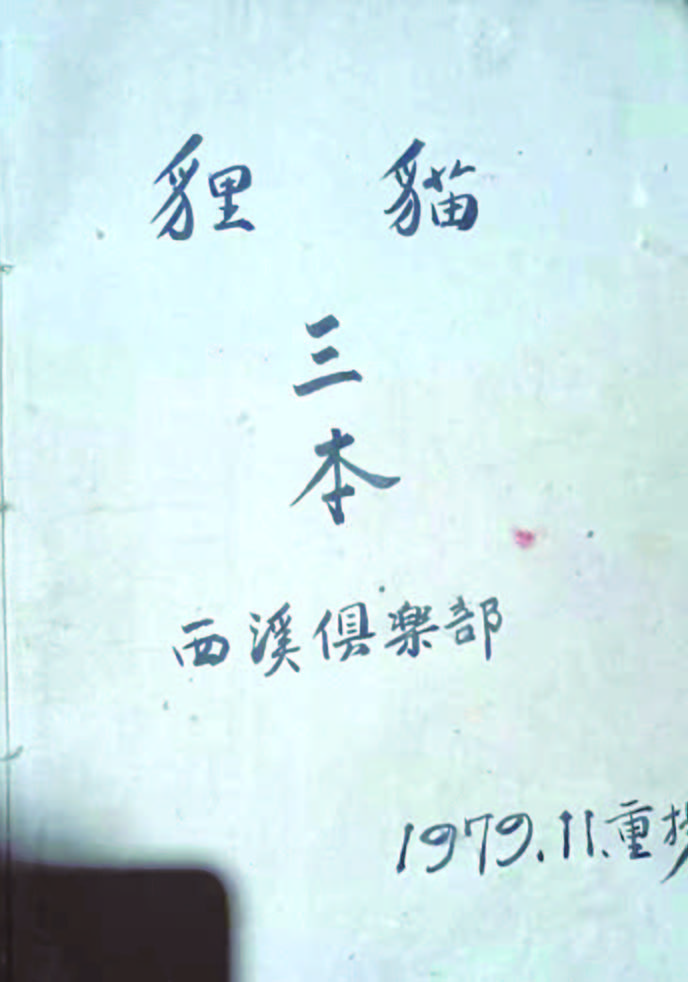 貍 貓
三
本
西溪俱樂部
1979.11.重抄